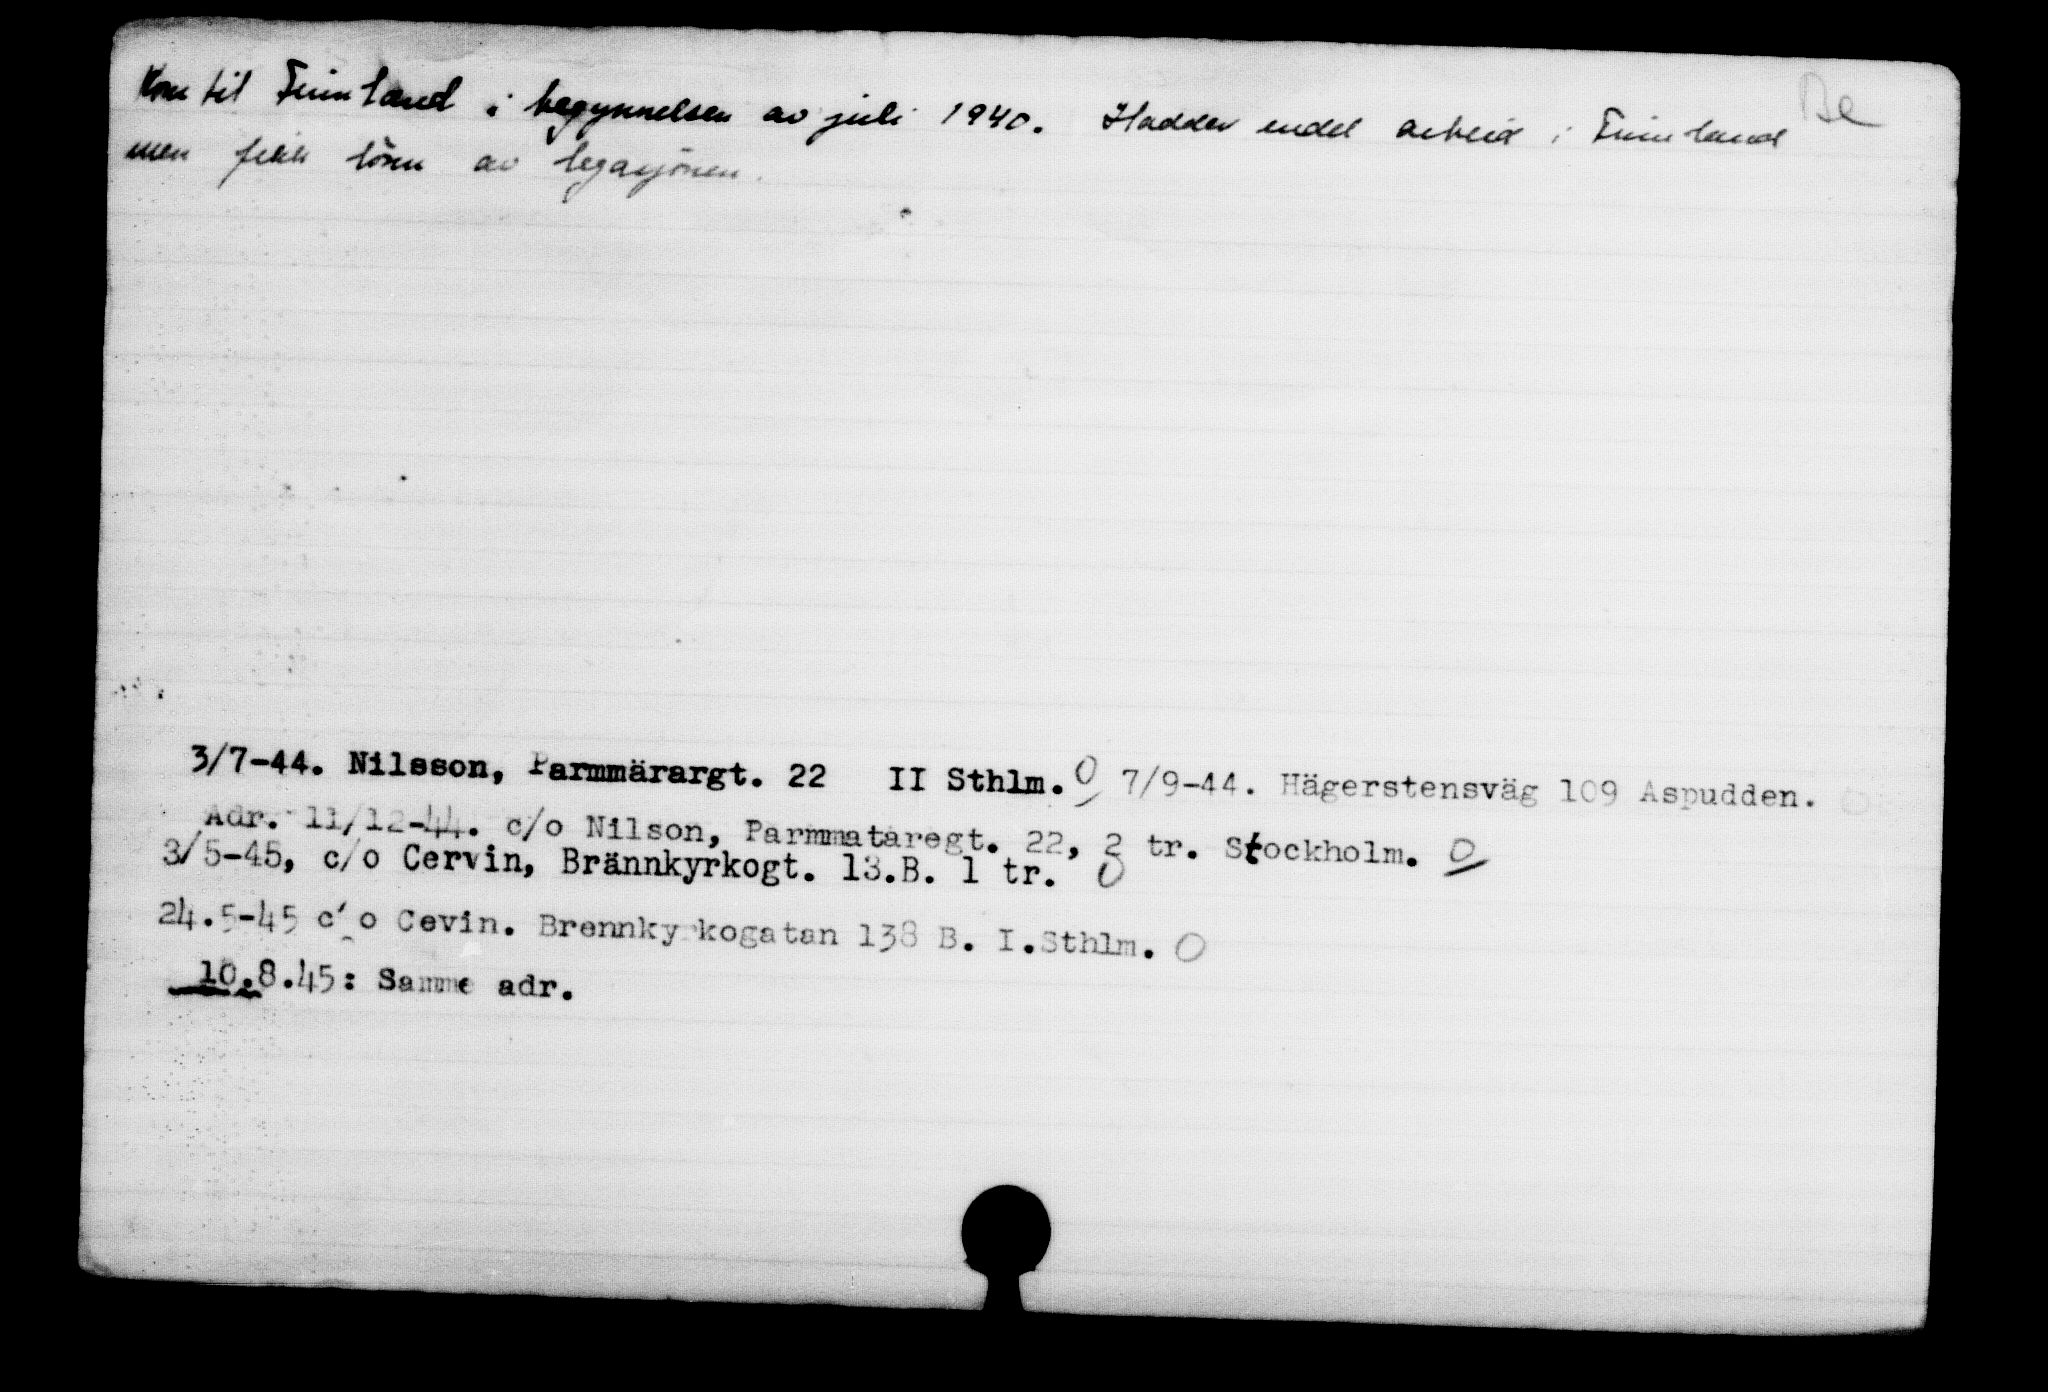 Be
Kom til Finnland i begynnelsen av juli 1940. Hadde endel arbeid i Finnland
men fikk lönn av legasjönen.
3/7-44. Nilsson, Parmmärargt. 22 II Sthlm. O 7/9-44. Hägerstensväg 109 Aspudden. O
Adr. 11/12-44. c/o Nilson, Parmmataregt. 22, 2 tr. Stockholm. O
3/5-45, c/o Cervin, Brännkyrkogt. 13.B. 1 tr. O
24.5-45 c/o Cevin. Brennkyrkogatan 138 B. I.Sthlm. O
10.8.45: Samme adr.